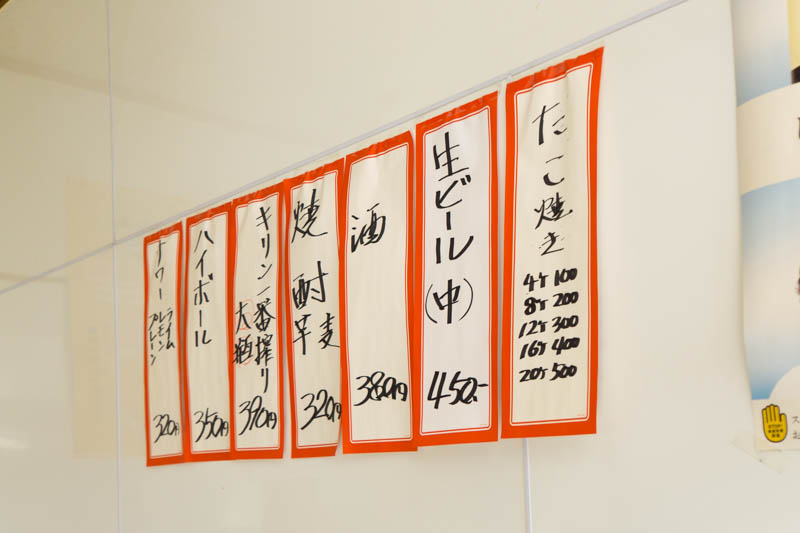 たこ焼き
4ケ 100
8ケ 200
12ケ 300
16ケ 400
20ケ 500
生ビール(中)
450.-
酒
380円
焼酎
麦
芋
320円
キリン一番搾り
大瓶
390円
ハイボール
350円
サワー
ライム
レモン
プレーン
320円
STOP!